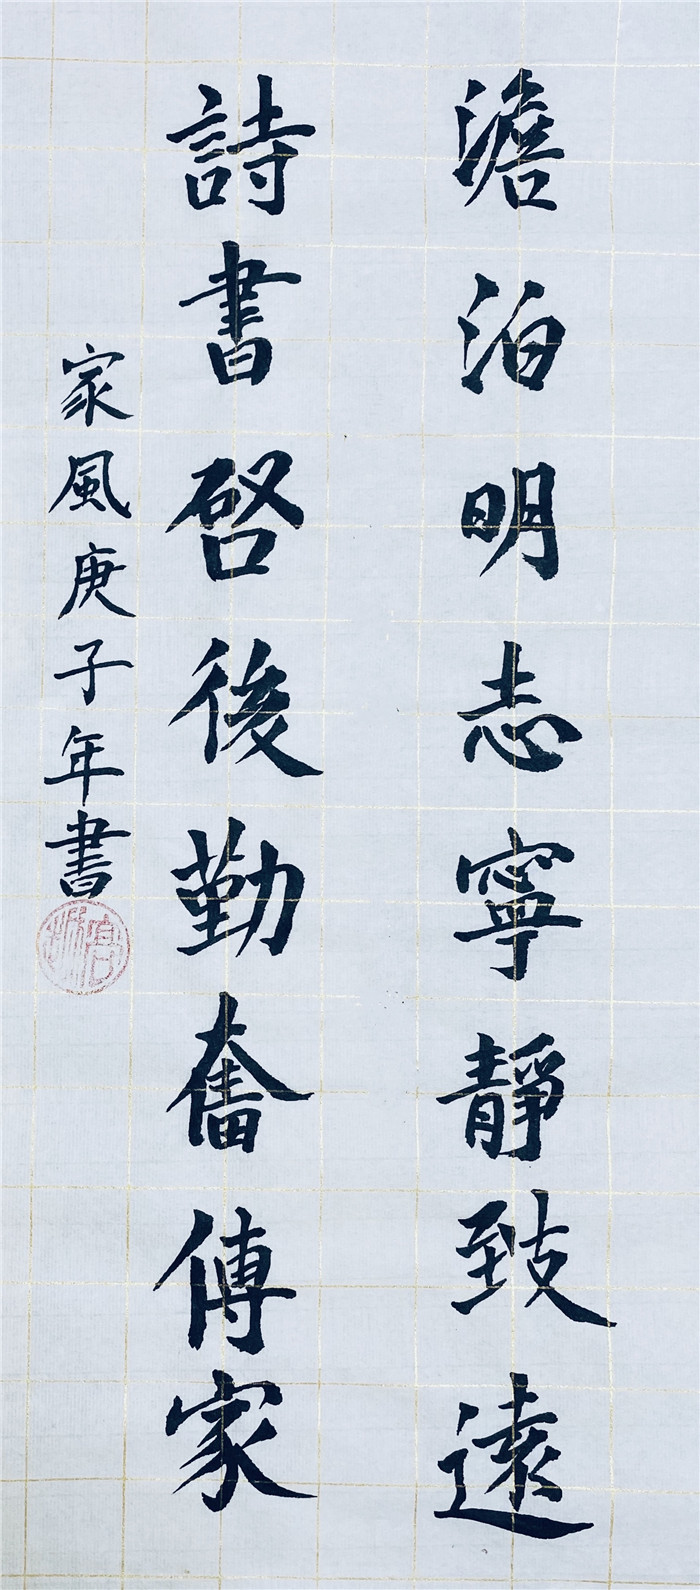 澹泊明志寧靜致遠
詩書啓後勤奮傳家
家風庚子年書